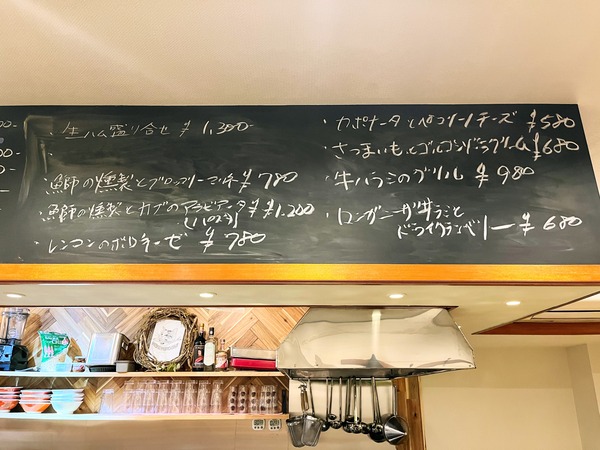 00-
・生ハム盛り合せ ¥1,300-
・鰤の燻製とブロッコリーマッチ ¥780
・鰤の燻製とカブのアラビアータ ¥1,200
・レンコンのボロネーゼ ¥780
・カポナータとペコリーノチーズ ¥580
・さつまいもとゴルゴンゾーラグリル ¥680
・牛ハラミのグリル ¥980
・ロンガニーザ
ドライクランベリー ¥680